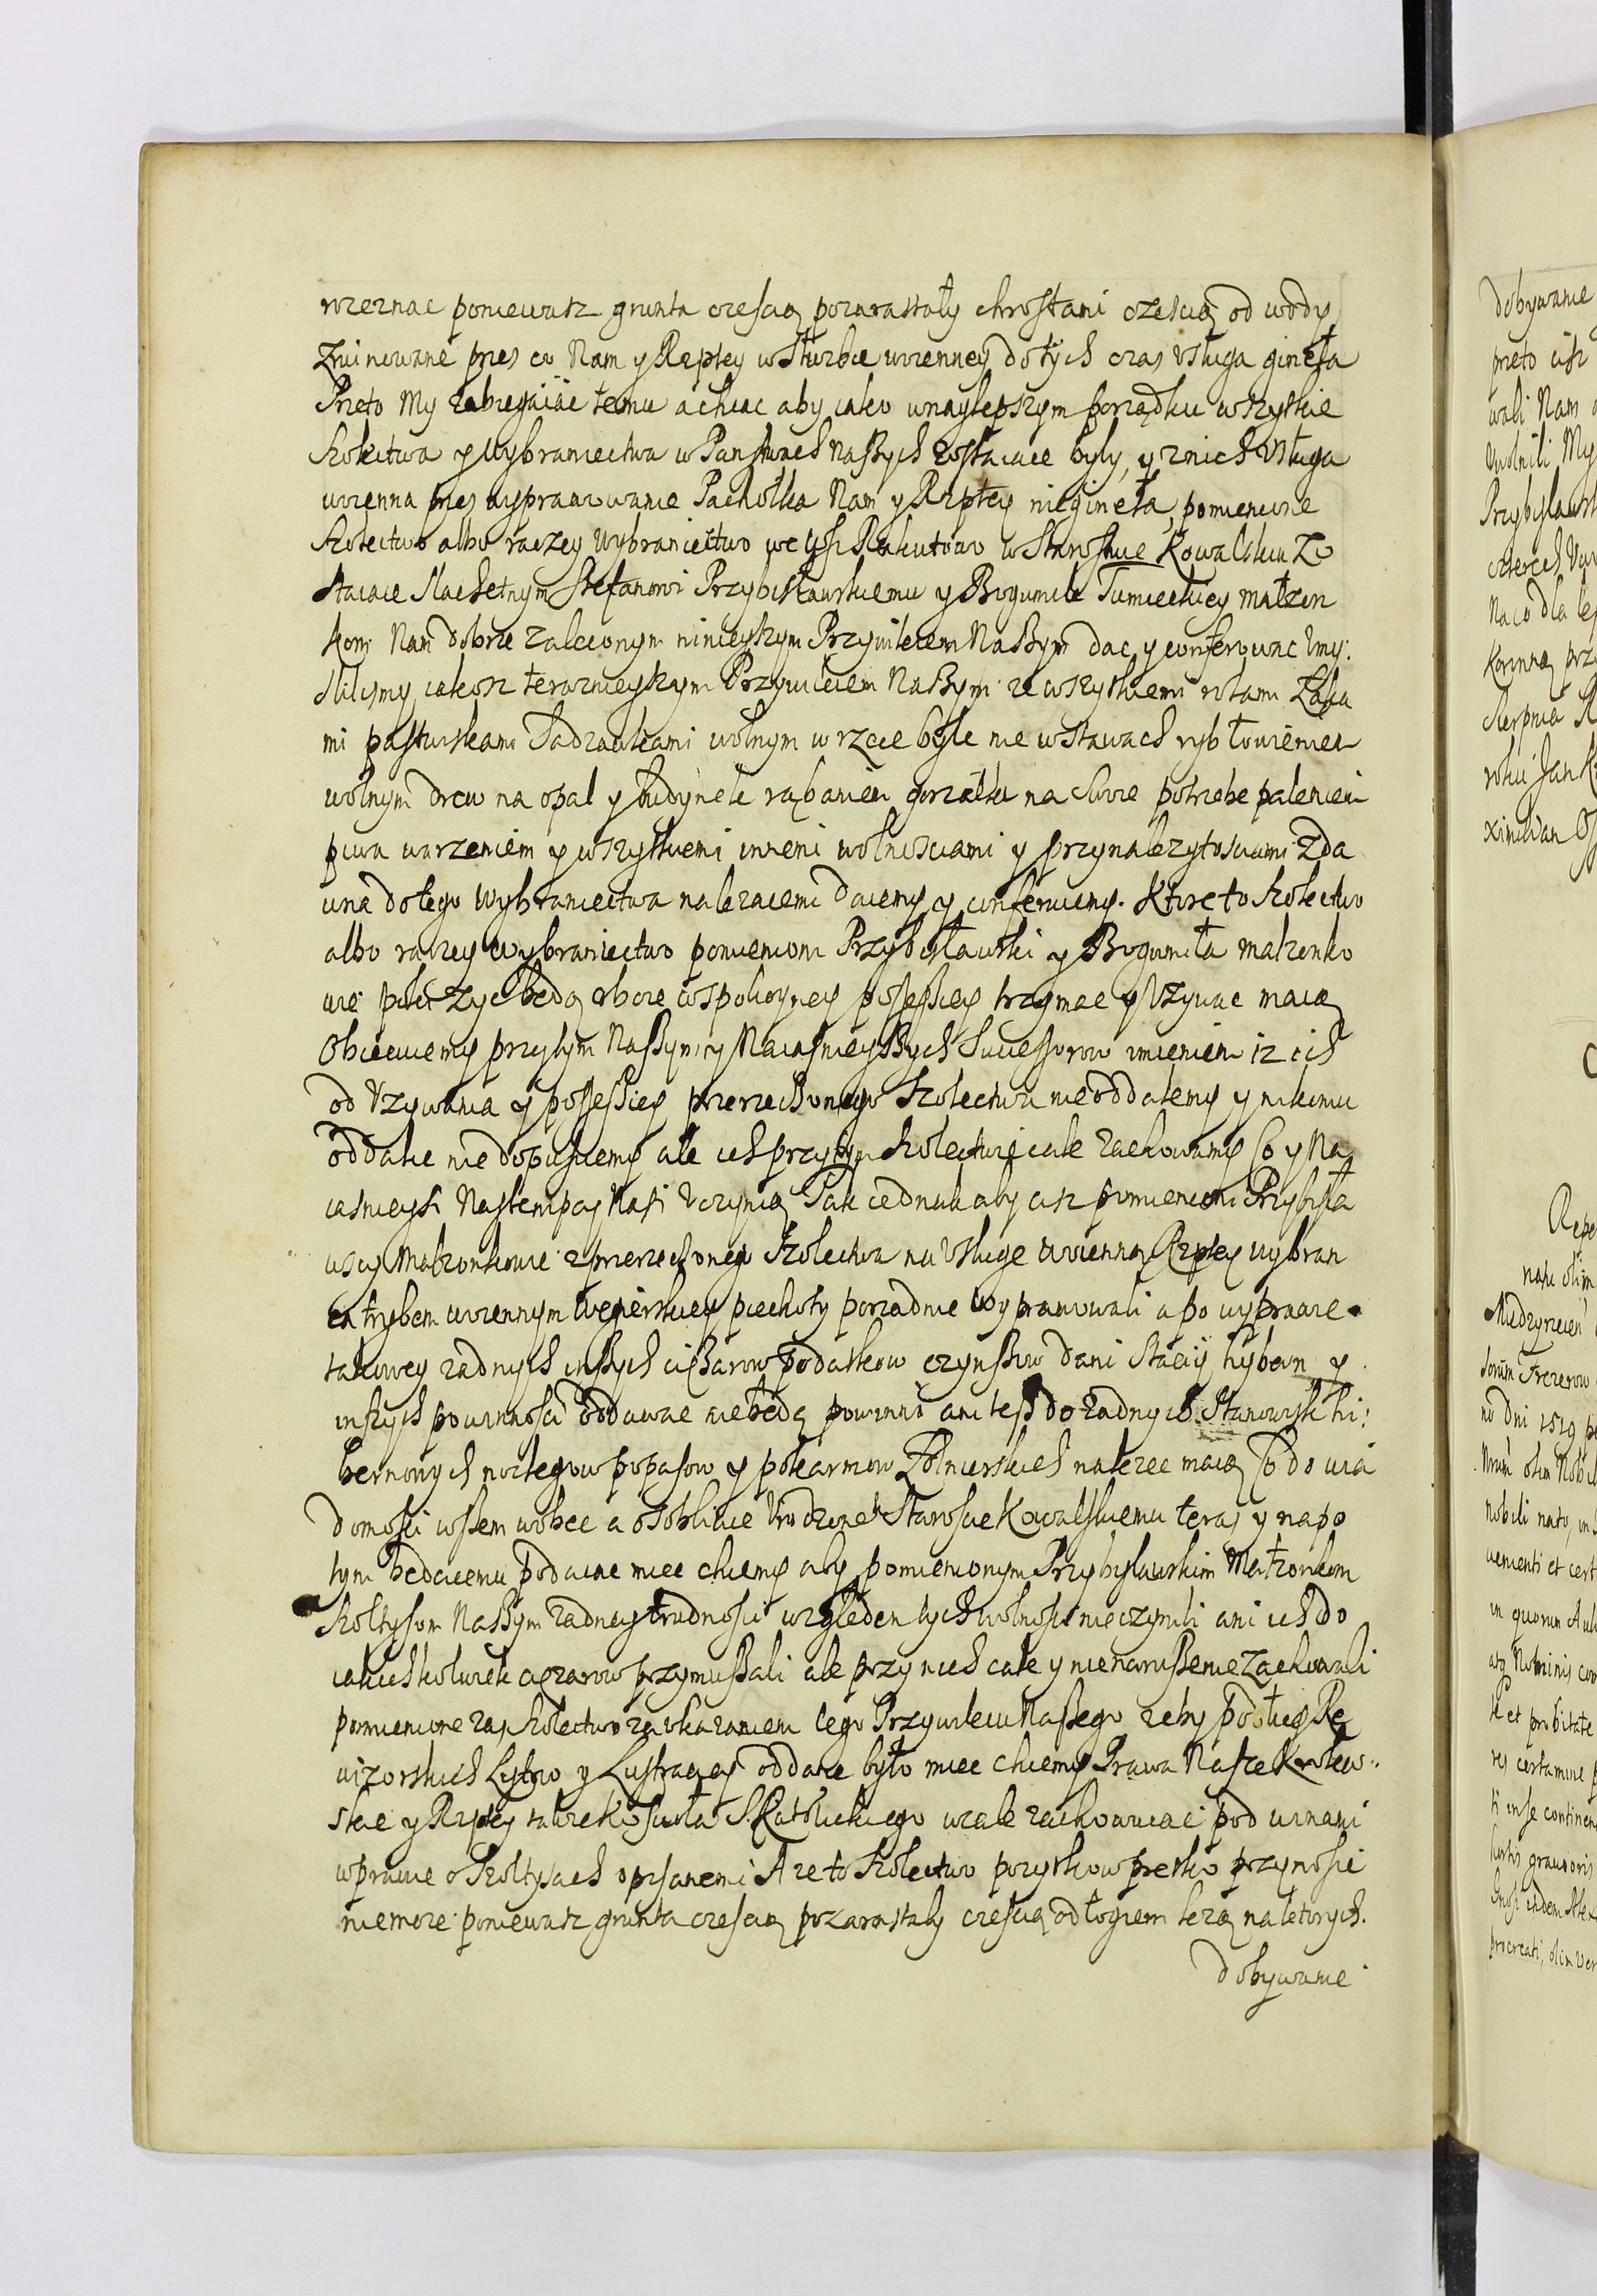 rzeznac poniewasz grunta czescią pozarastały chrostami czescią od wody
zruinowane przes co Nam y Rzptey w słuzbie woienney do tych czas usługa gineła
Przeto My zabiegaiąc temu a chcąc aby iako w naylepszym porządku wszyskie
Szolectwa y Wybraniectwa w Panstwach Naszych zostaiące były, y z nich usługa
woienna przez wyprawowanie Pachołka Nam y Rzptey nie gineła, pomienione
Szolectwo albo raczey Wybraniectwo we Wsi Rakutowo w Starostwie Kowalskim zo
staiące Slachetnym Stefanowi Przybisławskiemu y Bogumile Tumieckiey małzon
kom Nam dobrze zaleconym ninieyszym Przywileiem Naszym dac y conferowac Umy:
slilismy, iakosz teraznieyszym Przywileiem Naszym ze wszyskiemi rolami Łąka
mi pastwiskami Sadzawkami wolnym w rzece byle nie w stawach ryb łowieniem
wolnym drew na opał y budynek rąbaniem gorzałki na swoie potrzebe paleniem
piwa warzeniem y wszyskiemi innemi wolnosciami y przynalezytosciami zda
wna do tego Wybraniectwa nalezącemi daiemy y conferuiemy. Ktore to Szolectwo
albo raczey Wybraniectwo pomienioni Przybisławski y Bogumiła małzonko
wie poki zyc będą oboie w spokoyney possessiey trzymac y Uzywac maią
Obiecuiemy przytym Naszym y Naiasnieyszych Successorow imieniem iz ich
od Uzywania y possessiey przerzeczonego Szolectwa nie oddalemy y nikomu
oddalic nie dopuściemy ale ich przy tym Szolectwie cale zachowamy Co y Na
iasnieysi Nastempcy Nasi Uczynią Tak iednak aby cisz pomienioni Przybisła
wscy Małzonkowie z przerzeczonego Szolectwa na Usługe woienną Rzptey wybran
ca trybem woiennym Węgierskiey piechoty porzadnie Wyprawowali a po wyprawie
takowey zadnych inszych ciężarow podatkow czynszow dani Staciy hybern y
inszych powinnosci oddawac nie będą powinni ani tesz do zadnych Stanowisk hi:
bernowych noclegow popasow y pokarmow Zołnierskich nalezec maią Co do wia
domosci wszem wobec a osobliwie Urodzonemu Staroscie Kowalskiemu teraz y napo
tym będącemu podaiąc miec chcemy aby pomienionym Przybisławskim Małzonkom
Szołtysom Naszym zadney trudnosci względem tych wolnosci nie czynili ani ich do
iakichkolwiek ciezarow przymuszali ale przy nich cale y nienaruszenie zachowali
pomienione zas Szolectwo za okazaniem tego Przywileiu Naszego zeby podług Re
wizorskich Listow y Lustracyey oddane było miec chcemy Prawa Nasze Krolew:
skie y Rzptey takze Koscioła S. Katolickiego wcale zachowuiąc pod winami
w prawie o Szołtysach opisanemi A ze to Szolectwo pozytkow prętko przynosic
nie moze poniewasz grunta czescią pozarastały czescią odłogiem lezą na ktorych
dobywanie